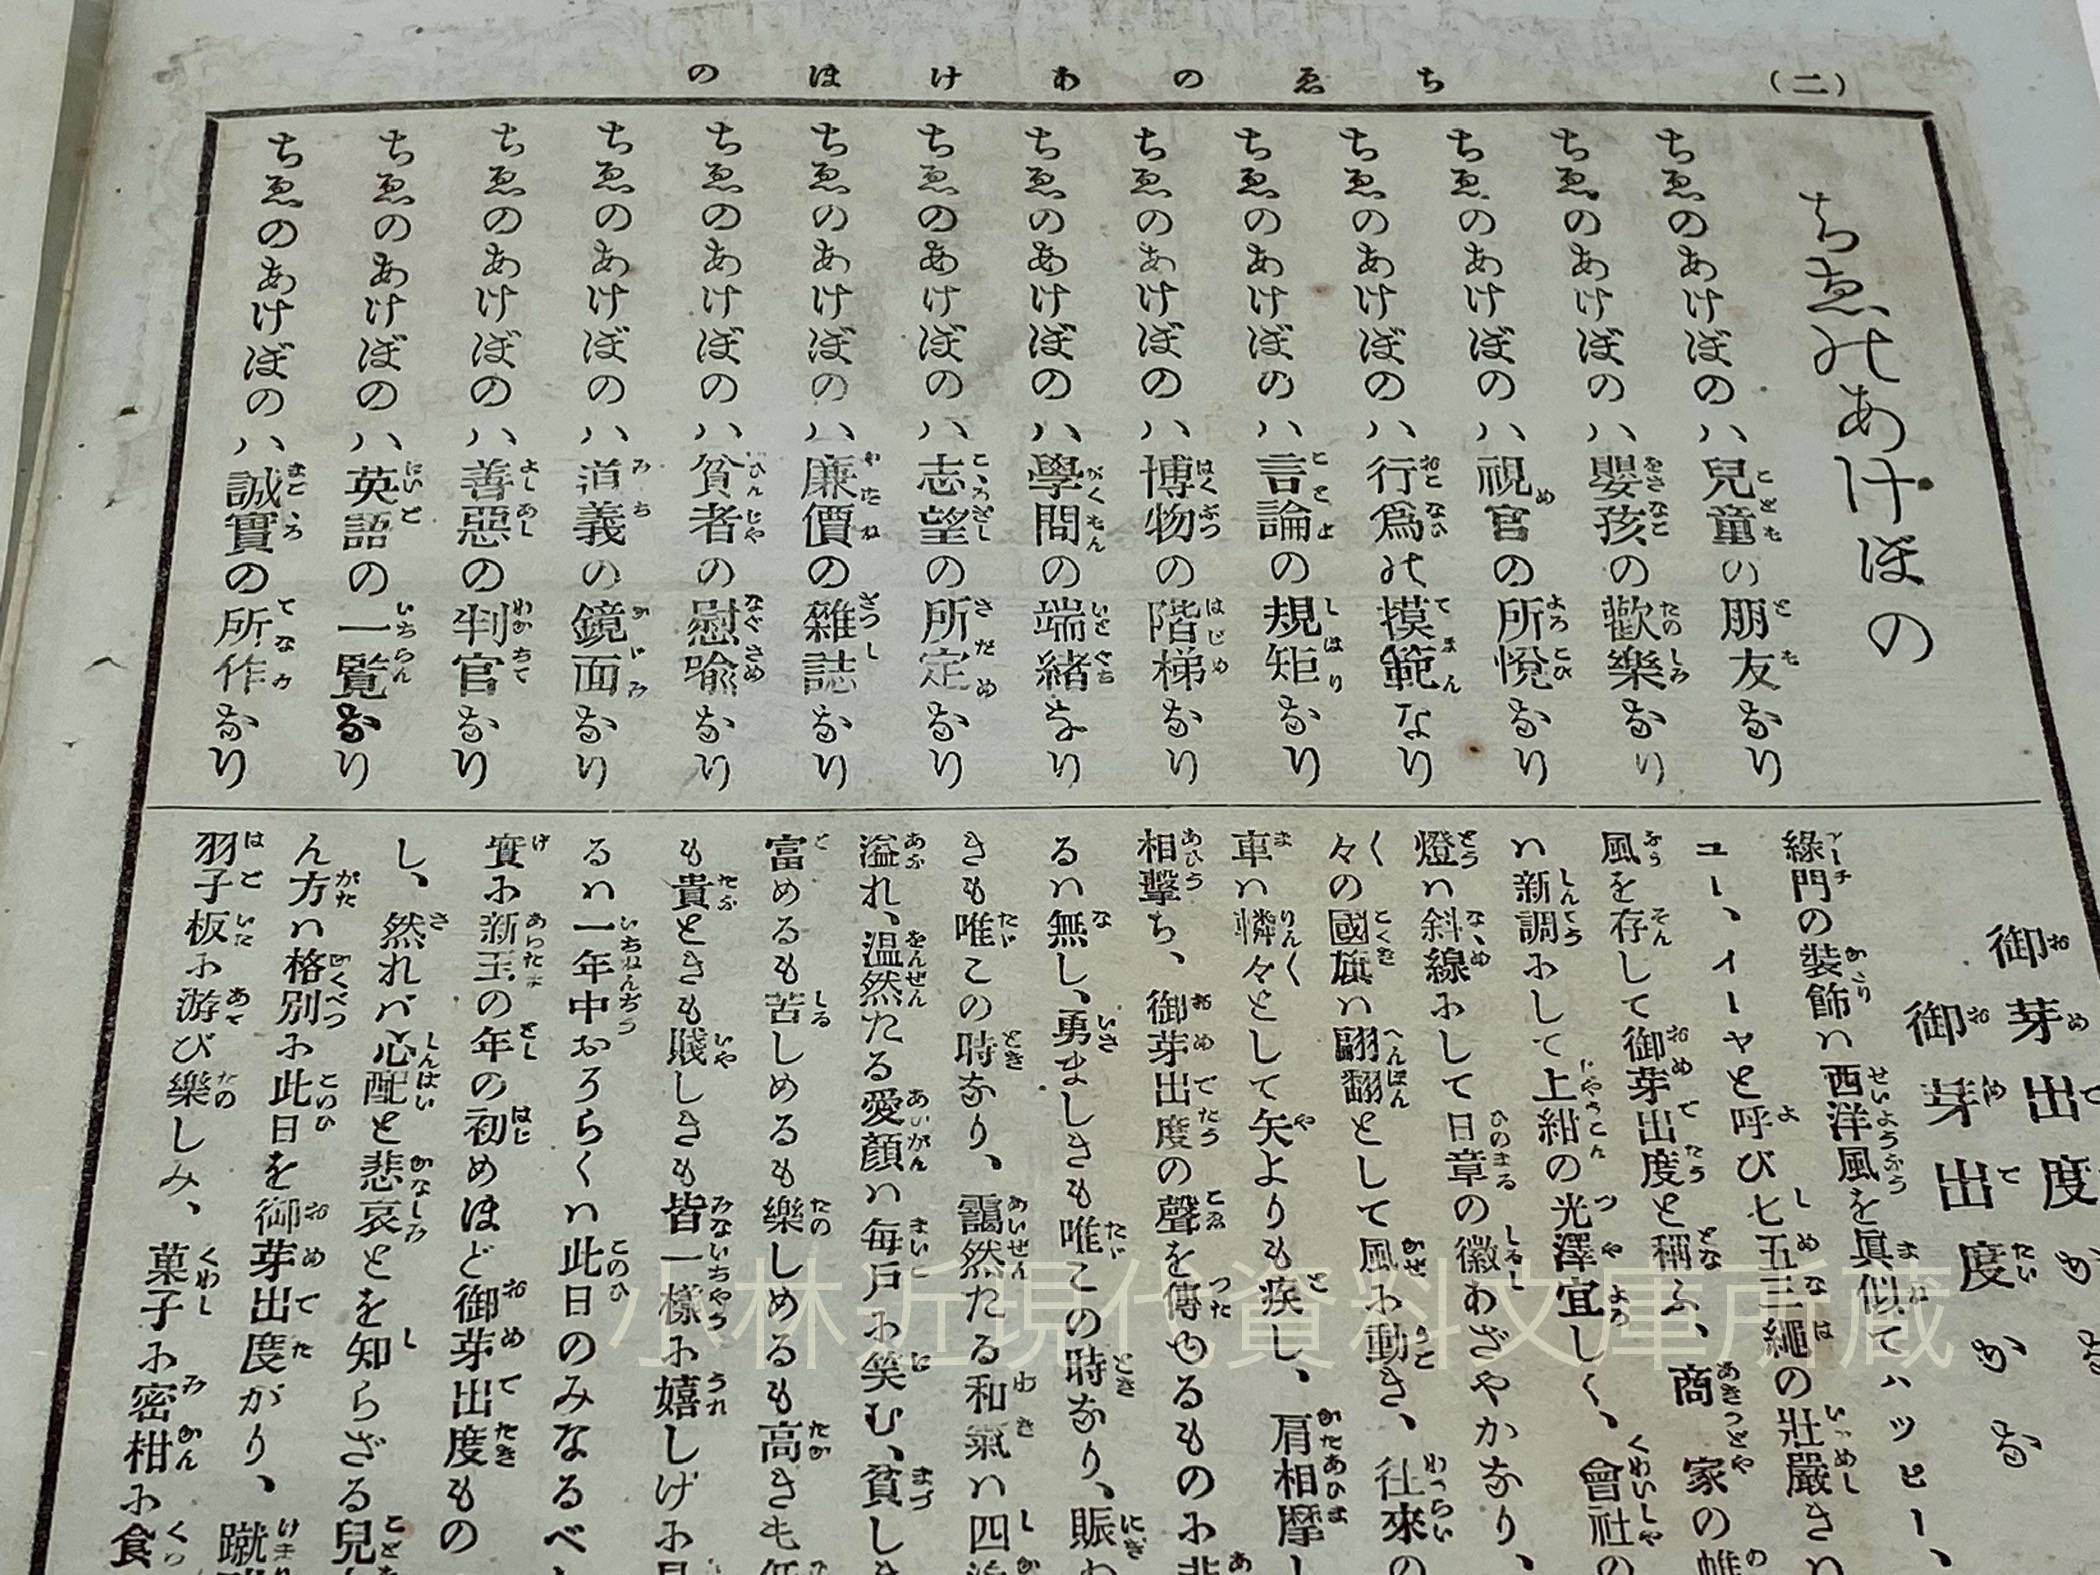 （二）
ちゑのあけほの
ちゑのあけぼの
ちゑのあけぼのハ兒童の朋友なり
ちゑのあけぼのハ嬰孩の歡樂なり
ちゑのあけぼのハ視官の所悅なり
ちゑのあけぼのハ行爲の摸範なり
ちゑのあけぼのハ言論の規矩なり
ちゑのあけぼのハ博物の階梯なり
ちゑのあけぼのハ學問の端緒なり
ちゑのあけぼのハ志望の所定なり
ちゑのあけぼのハ廉價の雜誌なり
ちゑのあけぼのハ貧者の慰喩なり
ちゑのあけぼのハ道義の鏡面なり
ちゑのあけぼのハ善惡の判官なり
ちゑのあけぼのハ英語の一覽なり
ちゑのあけぼのハ誠實の所作なり
御芽出度かな
御芽出度かな
綠門の裝飾ハ西洋風を眞似てハッピー、
ユー、イーヤと呼び七五三繩の壯嚴きハ
風を存して御芽出度と稱ふ、商家の
ハ新調にして上紺の光澤宜しく、會社の
燈ハ斜線にして日章の徽わざやかなり、
々の國旗ハ翩翻として風に動き、往來の
車ハ憐々として矢よりも疾し、肩相摩し
相擊ち、御芽出度の聲を傳ゆるものに非
るハ無し、勇ましきも唯この時なり、賑わ
きも唯この時なり、靄然たる和氣ハ四海
溢れ、温然たる愛顏ハ每戶に笑む、貧しき
富めるも苦しめるも樂しめるも高きも低
も貴ときも賤しきも皆一樣に嬉しげに見
るハ一年中おろらくハ此日のみなるべし
實に新玉の年の初めほど御芽出度もの
し、然れバ心配と悲哀とを知らざる兒
ん方ハ格別に此日を御芽出度がり、蹴
羽子板に游び樂しみ、菓子に密柑に食
小林近現代資料文庫所蔵